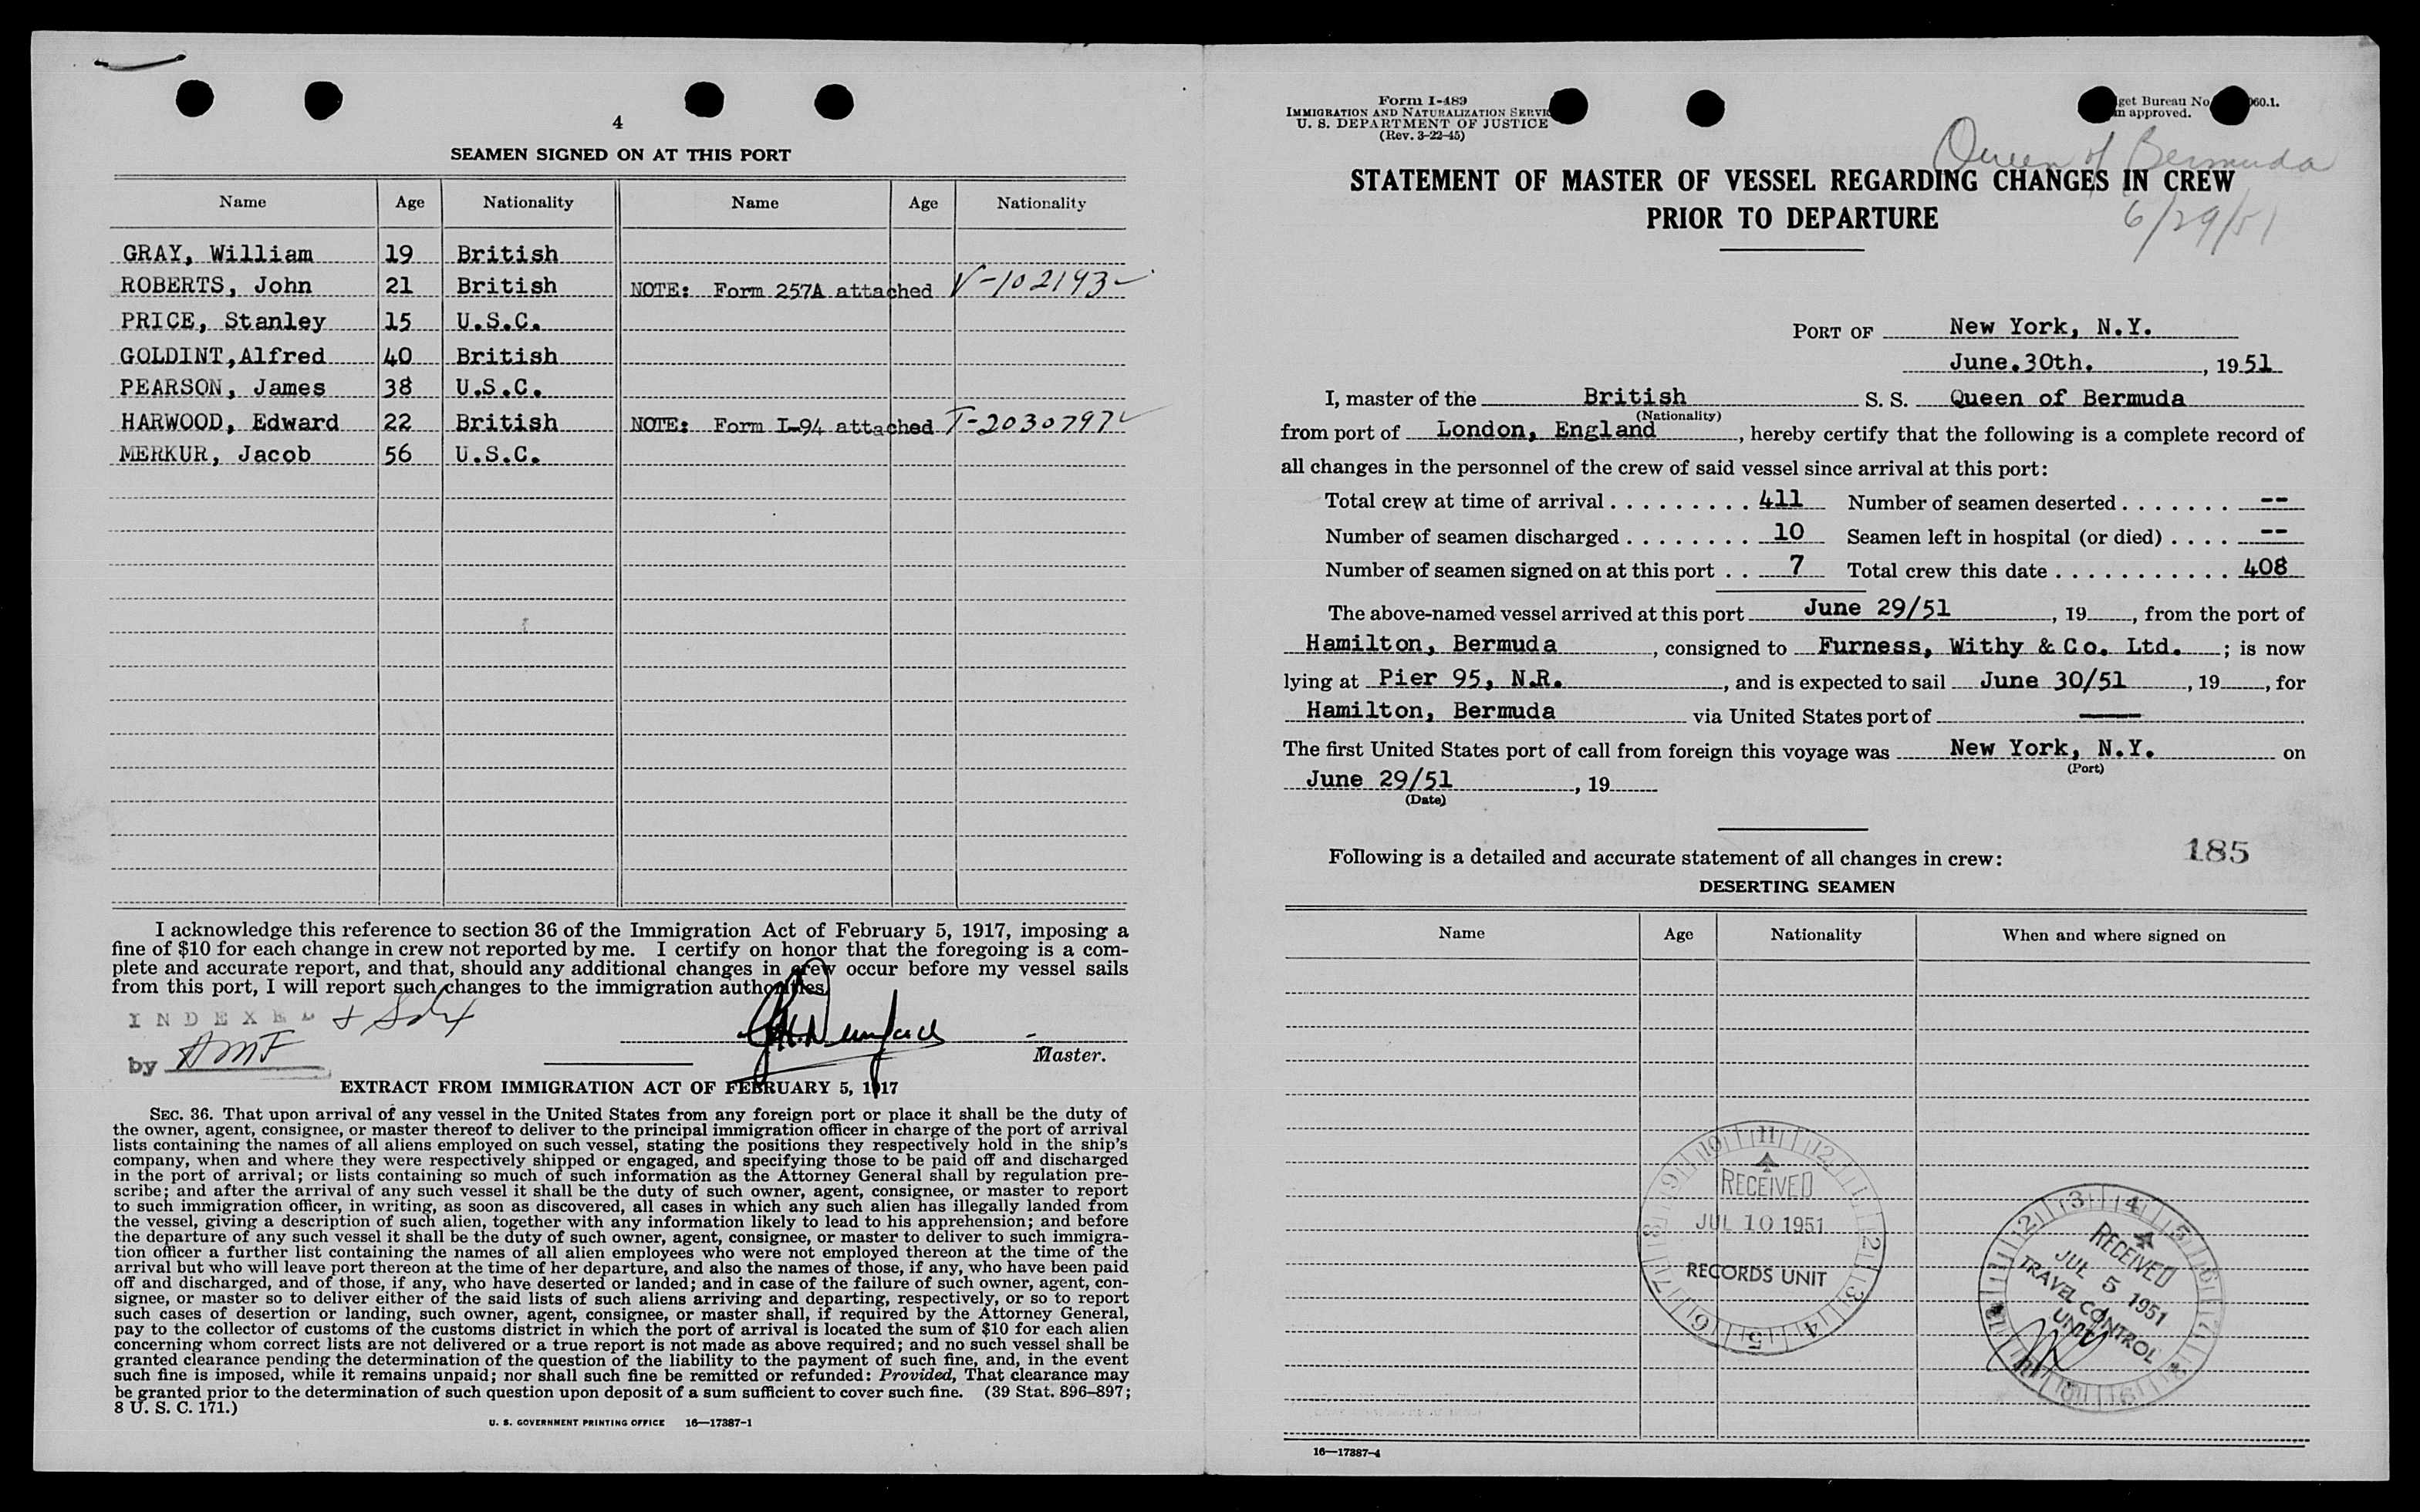 4
SEAMEN SIGNED ON AT THIS PORT
Name Age Nationality Name Age Nationality
GRAY, William 19 British
ROBERTS, John 21 British NOTE: Form 257A attached V-102193
PRICE, Stanley 15 U.S.C.
GOLDINT, Alfred 40 British
PEARSON, James 38 U.S.C.
HARWOOD, Edward 22 British NOTE: Form I-94 attached T-2030797
MERKUR, Jacob 56 U.S.C.
I acknowledge this reference to section 36 of the Immigration Act of February 5, 1917, imposing a
fine of $10 for each change in crew not reported by me. I certify on honor that the foregoing is a com-
plete and accurate report, and that, should any additional changes in crew occur before my vessel sails
from this port, I will report such changes to the immigration authorities
INDEXED
by AMF
Master.
EXTRACT FROM IMMIGRATION ACT OF FEBRUARY 5, 1917
SEC. 36. That upon arrival of any vessel in the United States from any foreign port or place it shall be the duty of
the owner, agent, consignee, or master thereof to deliver to the principal immigration officer in charge of the port of arrival
lists containing the names of all aliens employed on such vessel, stating the positions they respectively hold in the ship's
company, when and where they were respectively shipped or engaged, and specifying those to be paid off and discharged
in the port of arrival; or lists containing so much of such information as the Attorney General shall by regulation pre-
scribe; and after the arrival of any such vessel it shall be the duty of such owner, agent, consignee, or master to report
to such immigration officer, in writing, as soon as discovered, all cases in which any such alien has illegally landed from
the vessel, giving a description of such alien, together with any information likely to lead to his apprehension; and before
the departure of any such vessel it shall be the duty of such owner, agent, consignee, or master to deliver to such immigra-
tion officer a further list containing the names of all alien employees who were not employed thereon at the time of the
arrival but who will leave port thereon at the time of her departure, and also the names of those, if any, who have been paid
off and discharged, and of those, if any, who have deserted or landed; and in case of the failure of such owner, agent, con-
signee, or master so to deliver either of the said lists of such aliens arriving and departing, respectively, or so to report
such cases of desertion or landing, such owner, agent, consignee, or master shall, if required by the Attorney General,
pay to the collector of customs of the customs district in which the port of arrival is located the sum of $10 for each alien
concerning whom correct lists are not delivered or a true report is not made as above required; and no such vessel shall be
granted clearance pending the determination of the question of the liability to the payment of such fine, and, in the event
such fine is imposed, while it remains unpaid; nor shall such fine be remitted or refunded: Provided, That clearance may
be granted prior to the determination of such question upon deposit of a sum sufficient to cover such fine. (39 Stat. 896–897;
8 U. S. C. 171.)
U. S. GOVERNMENT PRINTING OFFICE 16—17387-1
Form I-489
IMMIGRATION AND NATURALIZATION
U. S. DEPARTMENT OF JUSTICE
(Rev. 3-22-45)
Bureau No. 60.1.
approved.
Queen of Bermuda
STATEMENT OF MASTER OF VESSEL REGARDING CHANGES IN CREW
PRIOR TO DEPARTURE
6/29/51
PORT OF New York, N.Y.
June.30th., 1951
I, master of the British S. S. Queen of Bermuda
(Nationality)
from port of London, England, hereby certify that the following is a complete record of
all changes in the personnel of the crew of said vessel since arrival at this port:
Total crew at time of arrival . . . . . . . . . 411 Number of seamen deserted . . . . . . . --
Number of seamen discharged . . . . . . . . 10 Seamen left in hospital (or died) . . . . --
Number of seamen signed on at this port . . 7 Total crew this date . . . . . . . . . . . 408
The above-named vessel arrived at this port June 29/51, 19, from the port of
Hamilton, Bermuda, consigned to Furness, Withy & Co. Ltd.; is now
lying at Pier 95, N.R., and is expected to sail June 30/51, 19, for
Hamilton, Bermuda via United States port of ——.
The first United States port of call from foreign this voyage was New York, N.Y. on
(Port)
June 29/51, 19
(Date)
185
Following is a detailed and accurate statement of all changes in crew:
DESERTING SEAMEN
Name Age Nationality When and where signed on
RECEIVED
JUL 10 1951
RECORDS UNIT
RECEIVED
JUL 5 1951
TRAVEL CONTROL
UNIT
16—17387-4